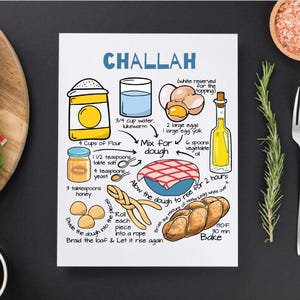 CHALLAH
(white reserved
for the
topping)
3/4 cup water,
lukewarm
2 large eggs
1 large egg yolk
4 Cups of Flour
Mix for
dough
6 spoons
vegetable
oil
1 1/2 teaspoons
table salt
4 teaspoons
yeast
3 tablespoons
honey
Allow the dough to rise for 2 hours
Divide the dough into
Roll
each
piece
into a rope
Braid the loaf & Let it rise again
30 min
Bake